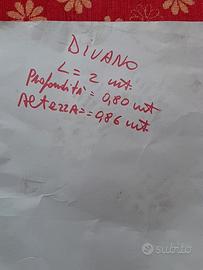 DIVANO
L = 2 mt.
Profondità = 0,80 mt
Altezza = 0,86 mt.
subito